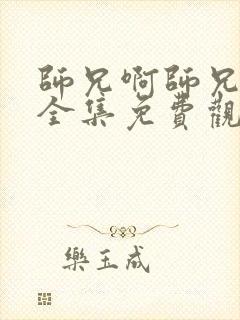 師兄啊師兄
全集免費觀
樂玉成